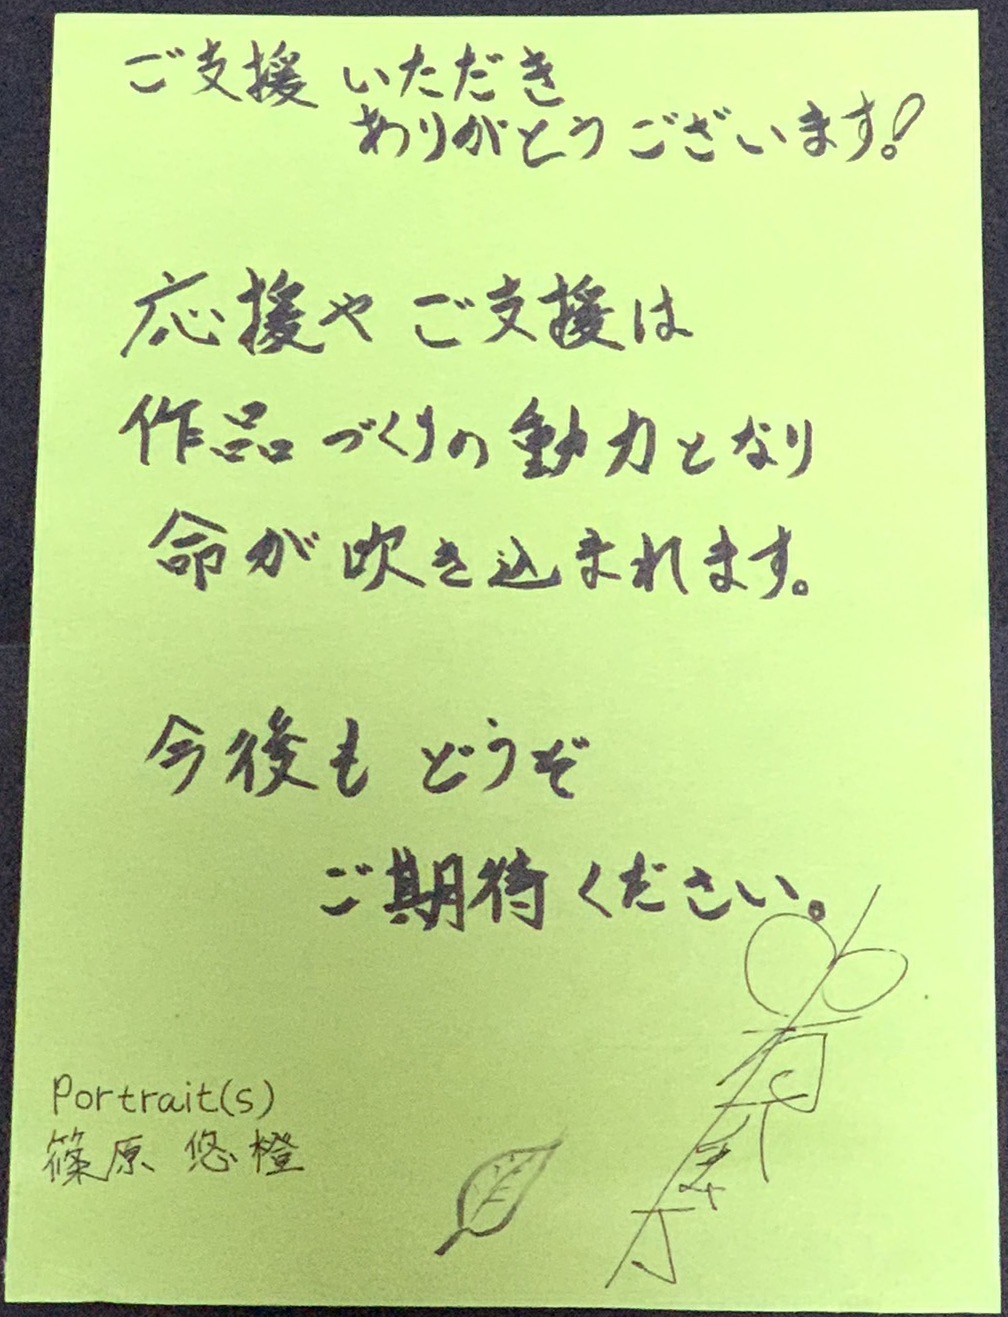 ご支援いただき
ありがとうございます!
応援やご支援は
作品づくりの動力となり
命が吹き込まれます。
今後もどうぞ
ご期待ください。
Portrait(s)
篠原 悠橙